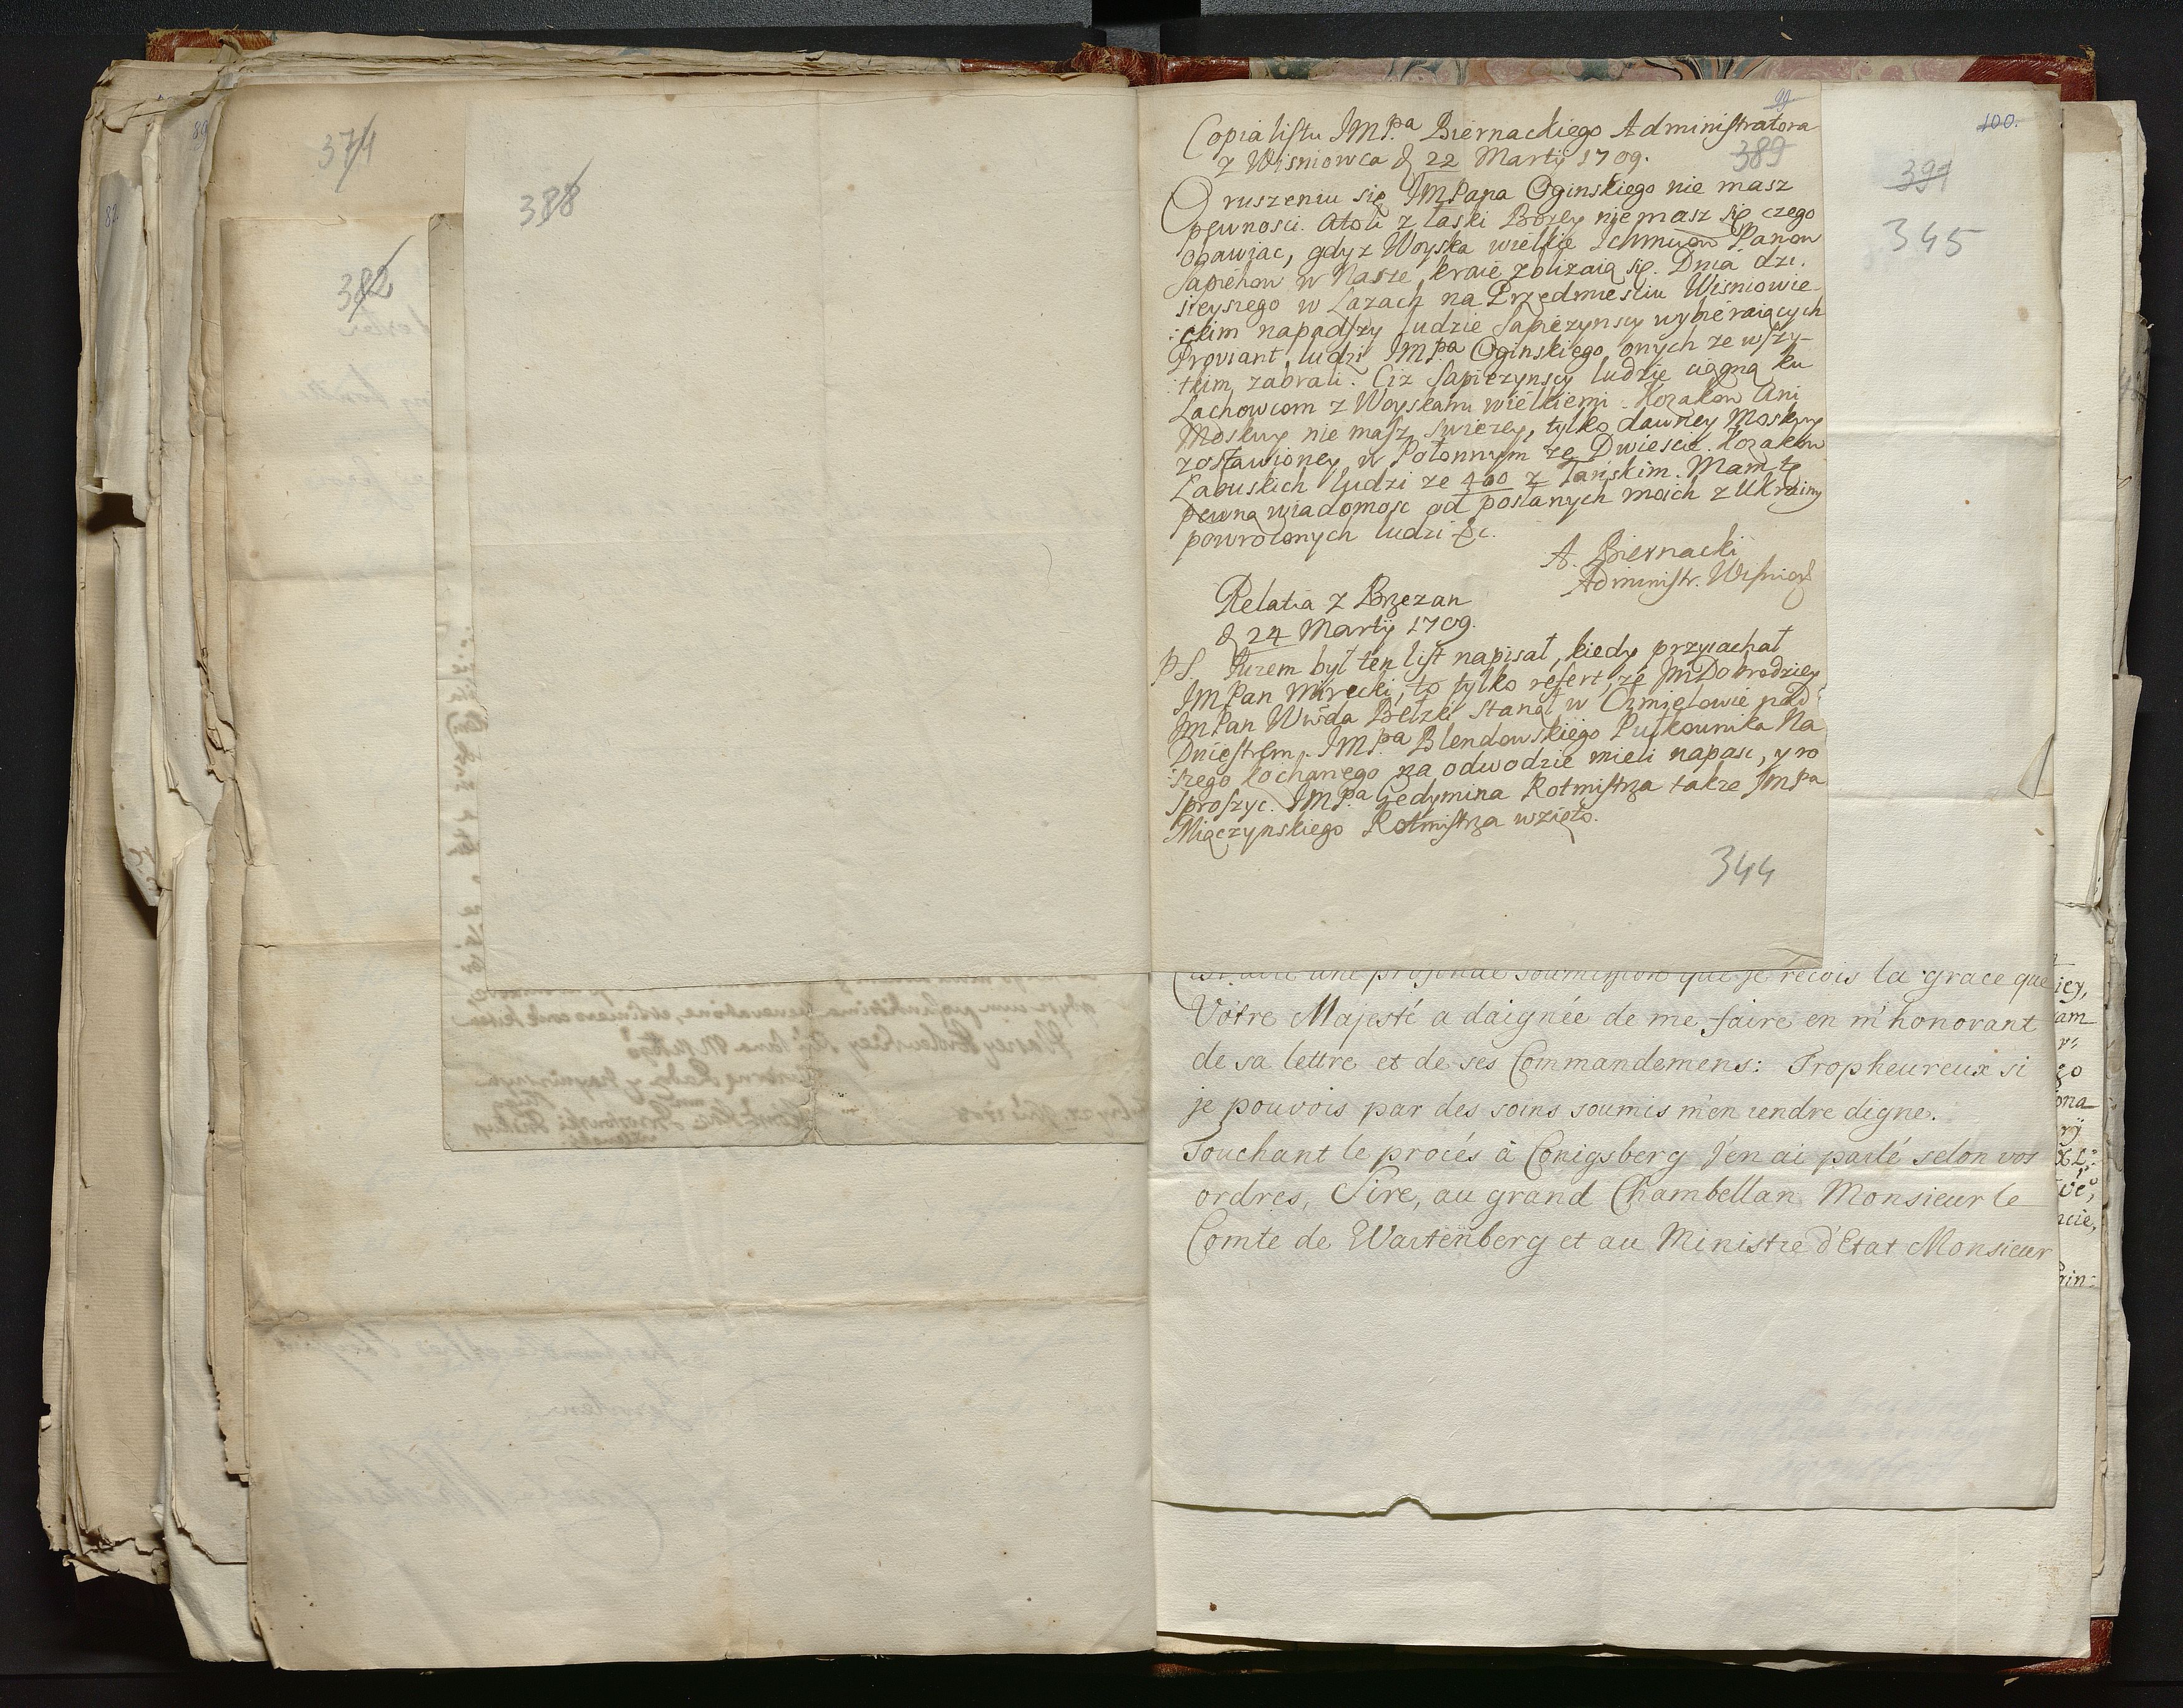 374
388
382
99
Copia listu JMP.pa Biernackiego Administratora
z Wisniowca d 22 Martij 1709.
389
O ruszeniu się JMPana Oginskiego nie masz
pewnosci. Atoli z łaski Bozey nie masz się czego
obawiac, gdyz Woyska wielkie Ichmciow Panow
Sapiehow w Nasze kraie zblizaią się. Dnia dzi-
sieyszego w Łazach na Przedmiesciu Wisniowie-
ckim napadszy ludzie Sapiezynscy wybieraiących
Prowiant, ludzi JMP.pa Oginskiego, onych ze wszy-
tkim zabrali. Ciz Sapiezynscy ludzie ciągną ku
Lachowcom z Woyskami wielkiemi. Kozakow Ani
Moskwy nie masz swiezey, tylko dawney Moskwy
zostawioney w Połonnym ze Dwiescie. Kozakow
Łabuskich ludzi ze 400 z Tanskim. Mam tę
pewną wiadomosc od posłanych moich z Ukrainy
powroconych ludzi &c.
A. Biernacki
Administr. Wisniow
Relatia z Brzezan
d 24 Martij 1709.
PS Jużem był ten list napisał, kiedy przyiachał
JMPan Mirecki, to tylko refert, ze JmDobrodziey
JmPan Wwda Bełzki stanął w Chmielowie nad
Dniestrem. JMP.pa Blendowskiego Pułkownika Na
szego kochanego na odwodzie mieli napasc, y ro
sproszyc. JMP.pa Gedymina Rotmistrza takze JmPa
Miączynskiego Rotmistrza wzięto.
344
100.
391
345
C'est avec une profonde soumission que je reçois la grace que
Vôtre Majesté a daignée de me faire en m'honorant
de sa lettre et de ses Commandemens: Tropheureux si
je pouvois par des soins soumis m'en rendre digne.
Touchant le procés à Conigsberg j'en ai parlé selon vos
ordres, Sire, au grand Chambellan Monsieur le
Comte de Wartenberg et au Ministre d'Etat Monsieur